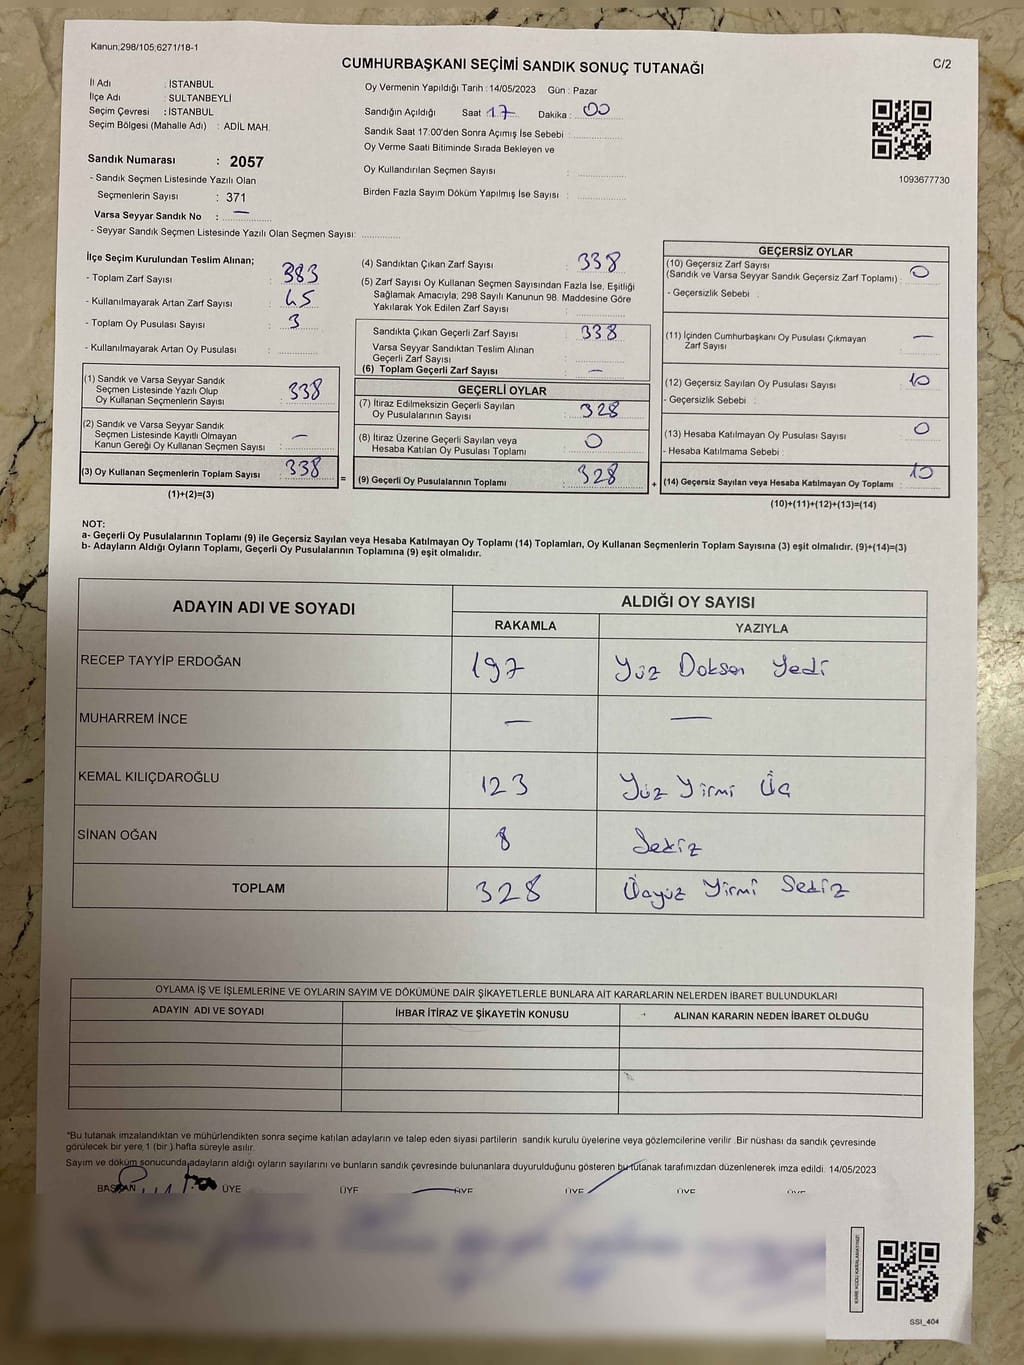 Kanun;298/105;6271/18-1
C/2
CUMHURBAŞKANI SEÇİMİ SANDIK SONUÇ TUTANAĞI
İl Adı : İSTANBUL
İlçe Adı : SULTANBEYLİ
Seçim Çevresi : İSTANBUL
Seçim Bölgesi (Mahalle Adı) : ADİL MAH.
Sandık Numarası : 2057
- Sandık Seçmen Listesinde Yazılı Olan
Seçmenlerin Sayısı : 371
Varsa Seyyar Sandık No : —
- Seyyar Sandık Seçmen Listesinde Yazılı Olan Seçmen Sayısı:
Oy Vermenin Yapıldığı Tarih : 14/05/2023 Gün : Pazar
Sandığın Açıldığı Saat 17 Dakika : 00
Sandık Saat 17:00'den Sonra Açımış İse Sebebi :
Oy Verme Saati Bitiminde Sırada Bekleyen ve
Oy Kullandırılan Seçmen Sayısı :
Birden Fazla Sayım Döküm Yapılmış İse Sayısı :
1093677730
İlçe Seçim Kurulundan Teslim Alınan;
- Toplam Zarf Sayısı : 383
- Kullanılmayarak Artan Zarf Sayısı : 45
- Toplam Oy Pusulası Sayısı : 3
- Kullanılmayarak Artan Oy Pusulası :
(1) Sandık ve Varsa Seyyar Sandık
Seçmen Listesinde Yazılı Olup
Oy Kullanan Seçmenlerin Sayısı : 338
(2) Sandık ve Varsa Seyyar Sandık
Seçmen Listesinde Kayıtlı Olmayan
Kanun Gereği Oy Kullanan Seçmen Sayısı : —
(3) Oy Kullanan Seçmenlerin Toplam Sayısı : 338 =
(1)+(2)=(3)
(4) Sandıktan Çıkan Zarf Sayısı : 338
(5) Zarf Sayısı Oy Kullanan Seçmen Sayısından Fazla İse, Eşitliği
Sağlamak Amacıyla; 298 Sayılı Kanunun 98. Maddesine Göre
Yakılarak Yok Edilen Zarf Sayısı :
Sandıkta Çıkan Geçerli Zarf Sayısı : 338
Varsa Seyyar Sandıktan Teslim Alınan
Geçerli Zarf Sayısı :
(6) Toplam Geçerli Zarf Sayısı : —
GEÇERLİ OYLAR
(7) İtiraz Edilmeksizin Geçerli Sayılan
Oy Pusulalarının Sayısı : 328
(8) İtiraz Üzerine Geçerli Sayılan veya
Hesaba Katılan Oy Pusulası Toplamı : 0
(9) Geçerli Oy Pusulalarının Toplamı : 328 +
GEÇERSİZ OYLAR
(10) Geçersiz Zarf Sayısı
(Sandık ve Varsa Seyyar Sandık Geçersiz Zarf Toplamı) : 0
- Geçersizlik Sebebi :
(11) İçinden Cumhurbaşkanı Oy Pusulası Çıkmayan
Zarf Sayısı : —
(12) Geçersiz Sayılan Oy Pusulası Sayısı : 10
- Geçersizlik Sebebi :
(13) Hesaba Katılmayan Oy Pusulası Sayısı : 0
- Hesaba Katılmama Sebebi :
(14) Geçersiz Sayılan veya Hesaba Katılmayan Oy Toplamı : 10
(10)+(11)+(12)+(13)=(14)
NOT:
a- Geçerli Oy Pusulalarının Toplamı (9) ile Geçersiz Sayılan veya Hesaba Katılmayan Oy Toplamı (14) Toplamları, Oy Kullanan Seçmenlerin Toplam Sayısına (3) eşit olmalıdır. (9)+(14)=(3)
b- Adayların Aldığı Oyların Toplamı, Geçerli Oy Pusulalarının Toplamına (9) eşit olmalıdır.
ADAYIN ADI VE SOYADI ALDIĞI OY SAYISI
RAKAMLA YAZIYLA
RECEP TAYYİP ERDOĞAN 197 Yüz Doksan Yedi
MUHARREM İNCE — —
KEMAL KILIÇDAROĞLU 123 Yüz Yirmi Üç
SİNAN OĞAN 8 Sekiz
TOPLAM 328 Üçyüz Yirmi Sekiz
OYLAMA İŞ VE İŞLEMLERİNE VE OYLARIN SAYIM VE DÖKÜMÜNE DAİR ŞİKAYETLERLE BUNLARA AİT KARARLARIN NELERDEN İBARET BULUNDUKLARI
ADAYIN ADI VE SOYADI İHBAR İTİRAZ VE ŞİKAYETİN KONUSU ALINAN KARARIN NEDEN İBARET OLDUĞU
*Bu tutanak imzalandıktan ve mühürlendikten sonra seçime katılan adayların ve talep eden siyasi partilerin sandık kurulu üyelerine veya gözlemcilerine verilir .Bir nüshası da sandık çevresinde
görülecek bir yere 1 (bir ) hafta süreyle asılır.
Sayım ve döküm sonucunda adayların aldığı oyların sayılarını ve bunların sandık çevresinde bulunanlara duyurulduğunu gösteren bu tutanak tarafımızdan düzenlenerek imza edildi. 14/05/2023
BAŞKAN ÜYE ÜYE ÜYE ÜYE ÜYE ÜYE
SSI_404